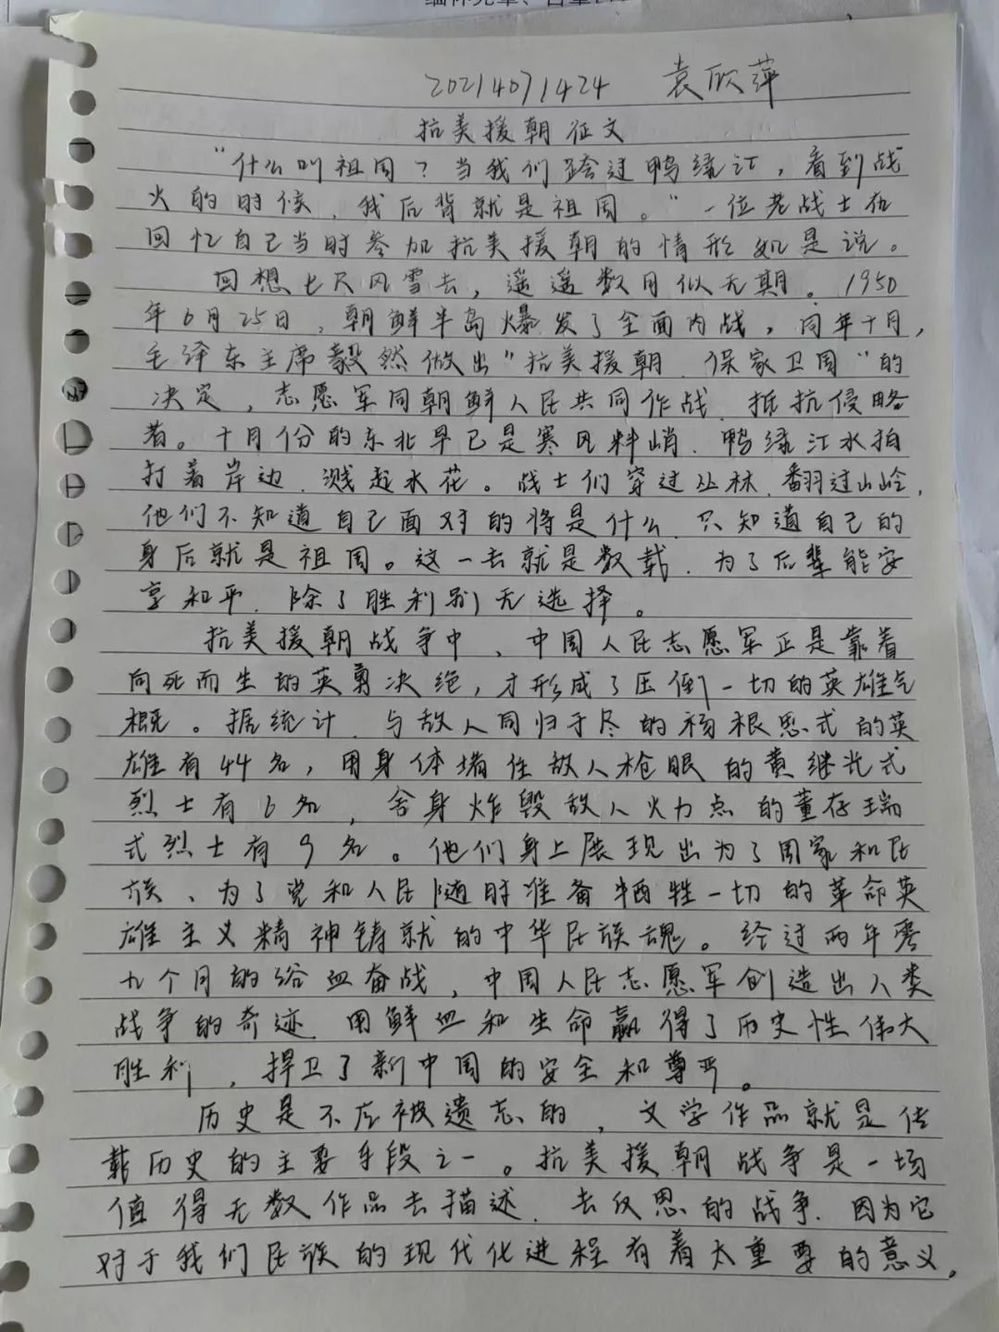 20214071424 袁欣萍
抗美援朝征文
“什么叫祖国？当我们跨过鸭绿江，看到战
火的时候，我后背就是祖国。”一位老战士在
回忆自己当时参加抗美援朝的情形如是说。
回想七尺风雪去，遥遥数月似无期。1950
年6月25日，朝鲜半岛爆发了全面内战，同年十月，
毛泽东主席毅然做出“抗美援朝，保家卫国”的
决定，志愿军同朝鲜人民共同作战，抵抗侵略
者。十月份的东北早已是寒风料峭，鸭绿江水拍
打着岸边，溅起水花。战士们穿过丛林，翻过山岭，
他们不知道自己面对的将是什么，只知道自己的
身后就是祖国。这一去就是数载，为了后辈能安
享和平，除了胜利别无选择。
抗美援朝战争中，中国人民志愿军正是靠着
向死而生的英勇决绝，才形成了压倒一切的英雄气
概。据统计，与敌人同归于尽的杨根思式的英
雄有44名，用身体堵住敌人枪眼的黄继光式
烈士有6名，舍身炸毁敌人火力点的董存瑞
式烈士有9名。他们身上展现出为了国家和民
族、为了党和人民随时准备牺牲一切的革命英
雄主义精神铸就的中华民族魂。经过两年零
九个月的浴血奋战，中国人民志愿军创造出人类
战争的奇迹，用鲜血和生命赢得了历史性伟大
胜利，捍卫了新中国的安全和尊严。
历史是不应被遗忘的，文学作品就是传
载历史的主要手段之一。抗美援朝战争是一场
值得无数作品去描述，去反思的战争，因为它
对于我们民族的现代化进程有着太重要的意义，